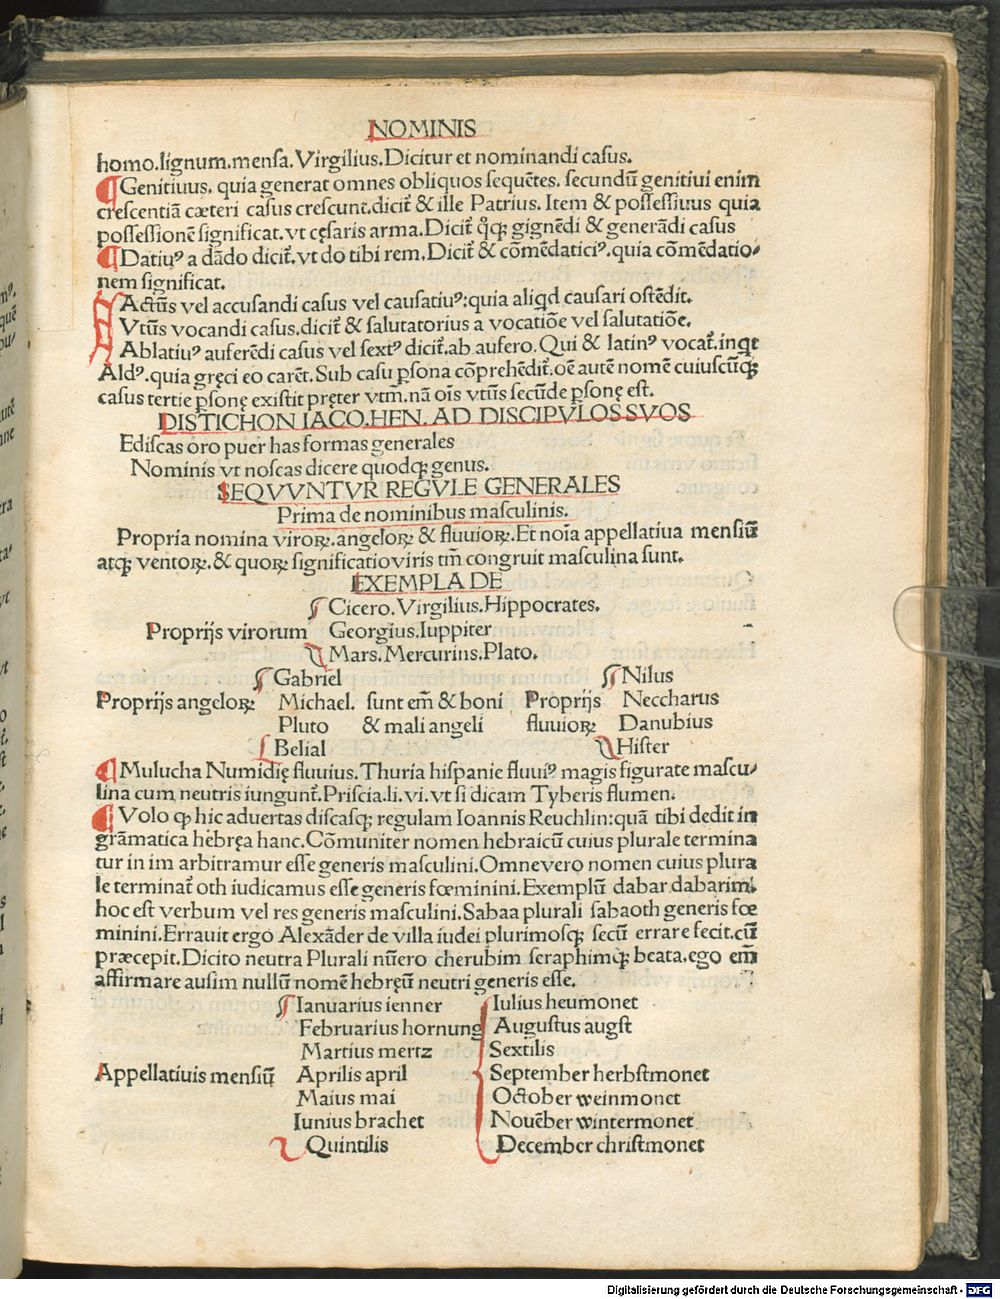 NOMINIS
homo.lignum.mensa.Virgilius.Dicitur et nominandi casus.
Genitiuus, quia generat omnes obliquos sequētes. secundū genitiui enim
crescentiā cæteri casus crescunt.dicit̃ & ille Patrius. Item & possessiuus quia
possessionē significat.vt cęsaris arma.Dicit̃ qͦꝗ gignēdi & generādi casus
Datiuꝰ a dādo dicit̃.vt do tibi rem.Dicit̃ & cōmēdaticiꝰ.quia cōmēdatio⸗
nem significat.
Actūs vel accusandi casus vel causatiuꝰ:quia aliqd causari ostēdit.
Vtūs vocandi casus.dicit̃ & salutatorius a vocatiōe vel salutatiōe.
Ablatiuꝰ auferēdi casus vel sextꝰ dicit̃.ab aufero.Qui & latinꝰ vocat̃.inqt
Aldꝰ.quia gręci eo carēt.Sub casu ꝑsona cōprehēdit̃.oē autē nomē cuiuscūqꝫ
casus tertie ꝑsonę existit pręter vtm̃.nā oīs vtūs secūde ꝑsonę est.
DISTICHON IACO.HEN. AD DISCIPVLOS SVOS
Ediscas oro puer has formas generales
Nominis vt noscas dicere quodqꝫ genus.
SEQVVNTVR REGVLE GENERALES
Prima de nominibus masculinis.
Propria nomina viroꝝ.angeloꝝ & fluuioꝝ.Et noīa appellatiua mensiū
atqꝫ ventoꝝ.& quoꝝ significatio viris tm̄ congruit masculina sunt.
EXEMPLA DE
Cicero.Virgilius.Hippocrates.
Proprijs virorum Georgius.Iuppiter
Mars.Mercurius.Plato.
Gabriel Nilus
Proprijs angeloꝝ Michael. sunt em̄ & boni Proprijs Neccharus
Pluto & mali angeli fluuioꝝ Danubius
Belial Hister
Mulucha Numidię fluuius.Thuria hispanie fluuiꝰ magis figurate mascu⸗
lina cum neutris iungunt̃.Priscia.li.vi.vt si dicam Tyberis flumen.
Volo ꝙ hic aduertas discasqꝫ regulam Ioannis Reuchlin:quā tibi dedit in
grāmatica hebręa hanc.Cōmuniter nomen hebraicū cuius plurale termina
tur in im arbitramur esse generis masculini.Omne vero nomen cuius plura
le terminat̃ oth iudicamus esse generis fœminini.Exemplū dabar dabarim.
hoc est verbum vel res generis masculini.Sabaa plurali sabaoth generis fœ
minini.Errauit ergo Alexāder de villa iudei plurimosqꝫ secū errare fecit.cū
præcepit.Dicito neutra Plurali nūero cherubim seraphimqꝫ beata.ego em̄
affirmare ausim nullū nomē hebręū neutri generis esse.
Ianuarius ienner Iulius heumonet
Februarius hornung Augustus augst
Martius mertz Sextilis
Appellatiuis mensiū Aprilis april September herbstmonet
Maius mai October weinmonet
Iunius brachet Nouēber wintermonet
Quintilis December christmonet
Digitalisierung gefördert durch die Deutsche Forschungsgemeinschaft - DFG